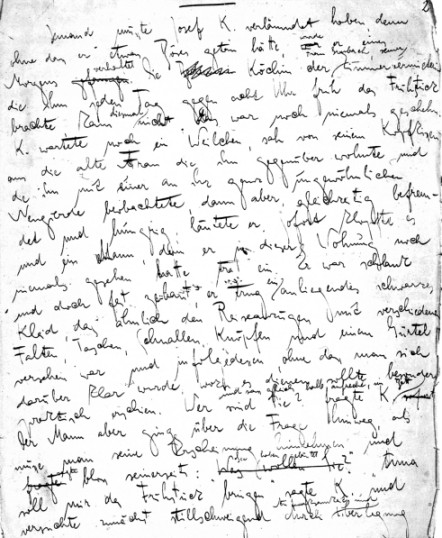 Jemand musste Josef K. verläumdet haben denn
ohne dass er etwas Böses getan hätte wurde er eines
Morgens verhaftet. Die Köchin der Zimmervermieterin
die ihm jeden Tag gegen acht Uhr früh das Frühstück
brachte kam diesmal nicht. Das war noch niemals geschehn.
K. wartete noch ein Weilchen, sah von seinem Kopfkissen
aus die alte Frau die ihm gegenüber wohnte und
die ihn mit einer an ihr ganz ungewöhnlichen
Neugierde beobachtete, dann aber, gleichzeitig befrem-
det und hungrig, läutete er. Sofort klopfte es
und ein Mann, den er in dieser Wohnung noch
niemals gesehen hatte trat ein. Er war schlank
und doch fest gebaut, er trug ein anliegendes schwarzes
Kleid, das ähnlich den Reiseanzügen mit verschiedenen
Falten, Taschen, Schnallen, Knöpfen und einem Gürtel
versehen war und infolgedessen, ohne dass man sich
darüber klar wurde, wozu es dienen sollte, besonders
praktisch erschien. Wer sind Sie? fragte K. und sass gleich halb aufrecht im Bett
Der Mann aber ging über die Frage hinweg, als
müsse man seine Erscheinung hinnehmen und
sagte bloss seinerseits: Sie haben geläutet? Anna
soll mir das Frühstück bringen sagte K. und
versuchte zunächst stillschweigend durch